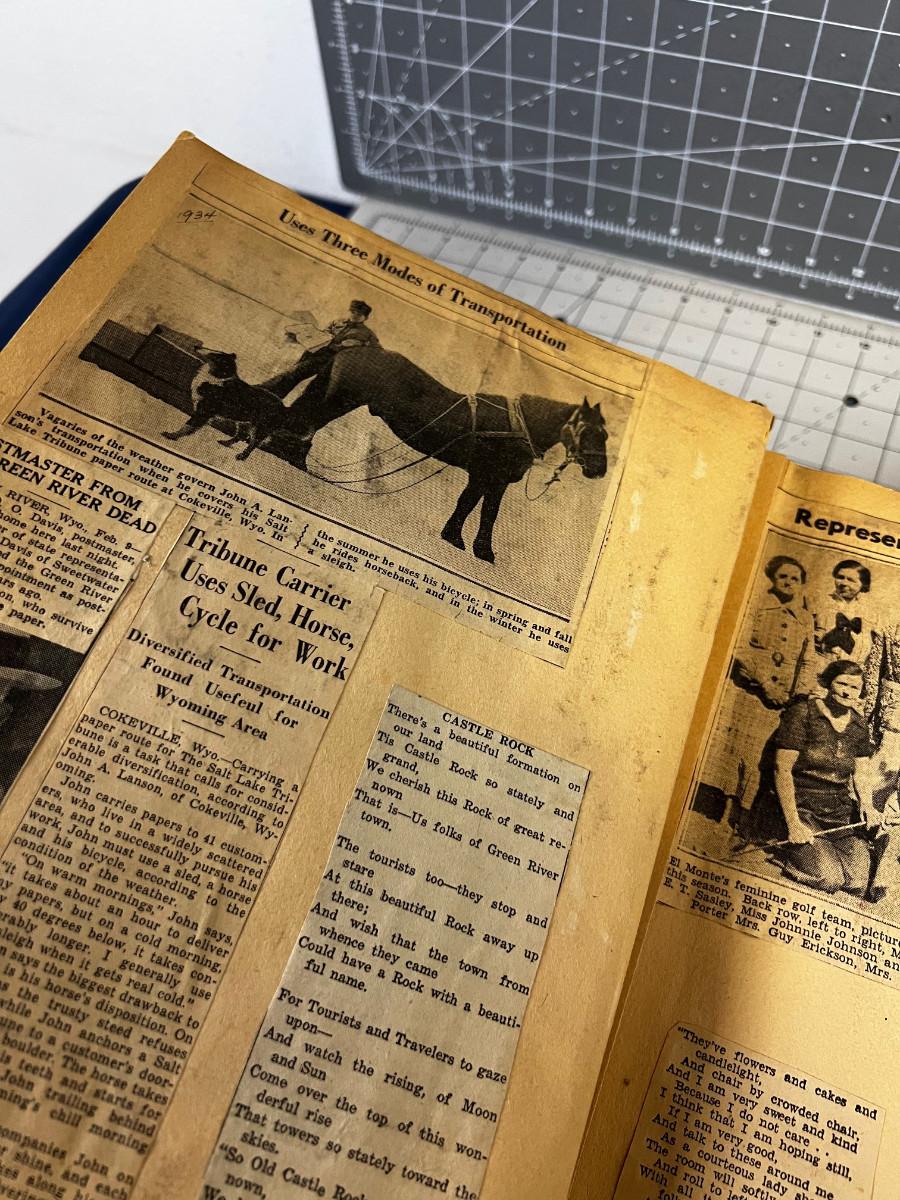 1934
Uses Three Modes of Transportation
Vagaries of the weather govern John A. Lan-
son's transportation when he covers his Salt
Lake Tribune paper route at Cokeville, Wyo. In
the summer he uses his bicycle; in spring and fall
he rides horseback, and in the winter he uses
a sleigh.
STMASTER FROM
REEN RIVER DEAD
RIVER, Wyo., Feb. 9—
O. Davis, postmaster,
home here last night.
r of state representa-
Davis of Sweetwater
d the Green River
pointment as post-
ars ago.
on, who survive
paper.
Tribune Carrier
Uses Sled, Horse,
Cycle for Work
Diversified Transportation
Found Usefeul for
Wyoming Area
COKEVILLE, Wyo.—Carrying a
paper route for The Salt Lake Tri-
bune is a task that calls for consid-
erable diversification, according to
John A. Lanson, of Cokeville, Wy-
oming.
John carries papers to 41 custom-
ers, who live in a widely scattered
area, and to successfully pursue his
work, John must use a sled, a horse
and his bicycle, according to the
condition of the weather.
"On warm mornings," John says,
"it takes about an hour to deliver
y papers, but on a cold morning,
y 40 degrees below, it takes con-
erably longer. I generally use
leigh when it gets real cold."
says the biggest drawback to
is his horse's disposition. On
s the trusty steed refuses
while John anchors a Salt
une to a customer's door-
boulder. The horse takes
is teeth and starts for
John trailing behind
ning's chill morning
ompanies John on
r shine, and each
kes along his
CASTLE ROCK
There's a beautiful formation on
our land
Tis Castle Rock so stately and
grand,
We cherish this Rock of great re-
nown
That is—Us folks of Green River
town.
The tourists too—they stop and
stare
At this beautiful Rock away up
there;
And wish that the town from
whence they came
Could have a Rock with a beauti-
ful name.
For Tourists and Travelers to gaze
upon—
And watch the rising, of Moon
and Sun
Come over the top of this won-
derful rise
That towers so stately toward the
skies.
"So Old Castle Rock
nown,
Represen
El Monte's feminine golf team, picture
this season. Back row, left to right, M
E. T. Sasley, Miss Johnnie Johnson an
Porter Mrs. Guy Erickson, Mrs.
"They've flowers and cakes and
candlelight,
And chair by crowded chair,
And I am very sweet and kind
Because I do not care . .
I think that I am hoping still,
If I am very good,
And talk to these around me
As a courteous lady sh
The room will softly
And roll to le
With all